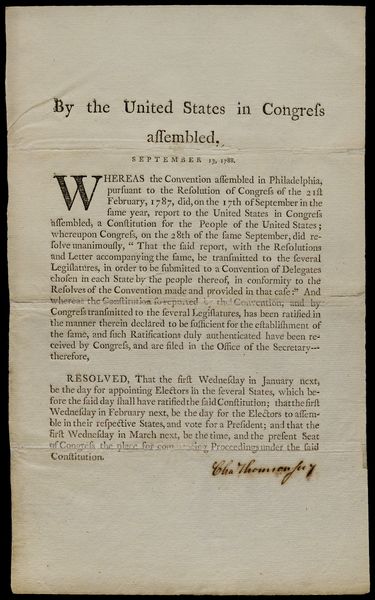 By the United States in Congreſs
aſſembled,
SEPTEMBER 13, 1788.
WHEREAS the Convention aſſembled in Philadelphia,
purſuant to the Reſolution of Congreſs of the 21ſt
February, 1787, did, on the 17th of September in the
ſame year, report to the United States in Congreſs
aſſembled, a Conſtitution for the People of the United States;
whereupon Congreſs, on the 28th of the ſame September, did re-
ſolve unanimouſly, “ That the ſaid report, with the Reſolutions
and Letter accompanying the ſame, be tranſmitted to the ſeveral
Legiſlatures, in order to be ſubmitted to a Convention of Delegates
choſen in each State by the people thereof, in conformity to the
Reſolves of the Convention made and provided in that caſe:” And
whereas the Conſtitution ſo reported by the Convention, and by
Congreſs tranſmitted to the ſeveral Legiſlatures, has been ratified in
the manner therein declared to be ſufficient for the eſtabliſhment of
the ſame, and ſuch Ratifications duly authenticated have been re-
ceived by Congreſs, and are filed in the Office of the Secretary—
therefore,
RESOLVED, That the firſt Wedneſday in January next,
be the day for appointing Electors in the ſeveral States, which be-
fore the ſaid day ſhall have ratified the ſaid Conſtitution; that the firſt
Wedneſday in February next, be the day for the Electors to aſſem-
ble in their reſpective States, and vote for a Preſident; and that the
firſt Wedneſday in March next, be the time, and the preſent Seat
of Congreſs the place for commencing Proceedings under the ſaid
Conſtitution.
Cha Thomson ſecy